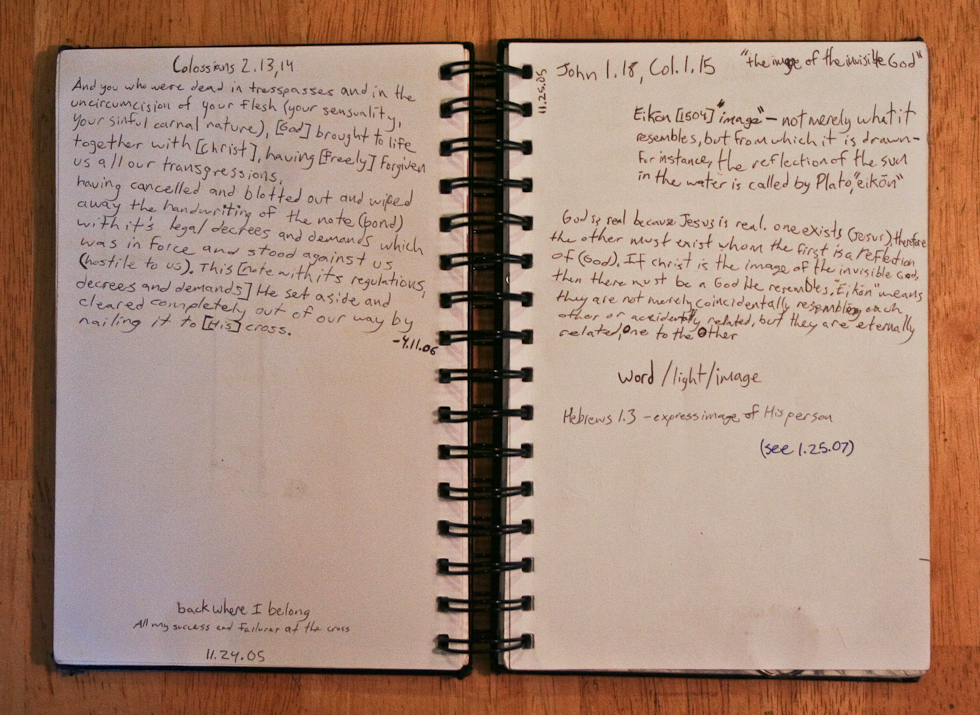 Colossians 2.13,14
And you who were dead in tresspasses and in the
uncircumcision of your flesh (your sensuality,
your sinful carnal nature), [God] brought to life
together with [Christ], having [freely] Forgiven
us all our transgressions,
having cancelled and blotted out and wiped
away the handwriting of the note (bond)
with it's legal decrees and demands which
was in force and stood against us
(hostile to us). This [note with its regulations,
decrees and demands] He set aside and
cleared completely out of our way by
nailing it to [His] cross.
-4.11.06
back where I belong
All my success and failures at the cross
11.24.05
11.25.05
John 1.18, Col. 1.15 "the image of the invisible God"
Eikōn [1504] "image" - not merely what it
resembles, but from which it is drawn-
For instance, the reflection of the sun
in the water is called by Plato, "eikōn"
God is real because Jesus is real. one exists (Jesus), therefore
the other must exist whom the first is a reflection
of (God). If Christ is the image of the invisible God,
then there must be a God He resembles. "Eikōn" means
they are not merely coincidentally resembling each
other or accidently related, but they are eternally
related, one to the other
word/light/image
Hebrews 1.3 - express image of His person
(see 1.25.07)